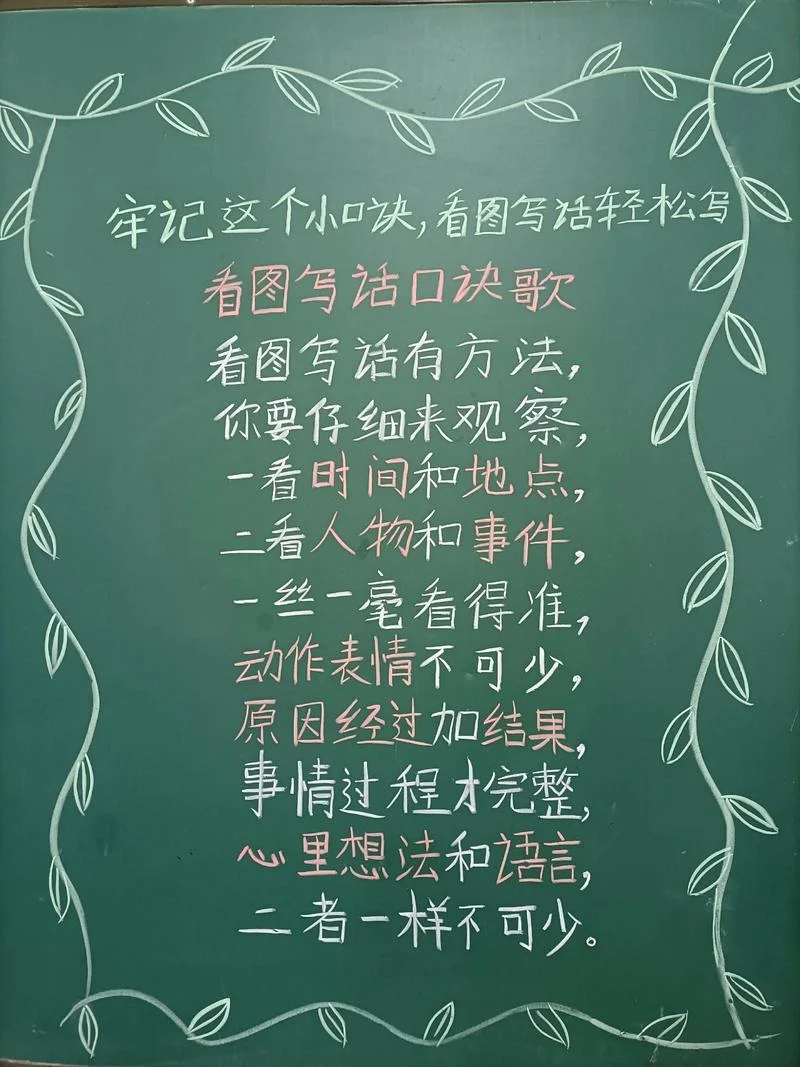 牢记这个小口诀,看图写话轻松写
看图写话口诀歌
看图写话有方法,
你要仔细来观察,
一看时间和地点,
二看人物和事件,
一丝一毫看得准,
动作表情不可少,
原因经过加结果,
事情过程才完整,
心里想法和语言,
二者一样不可少。